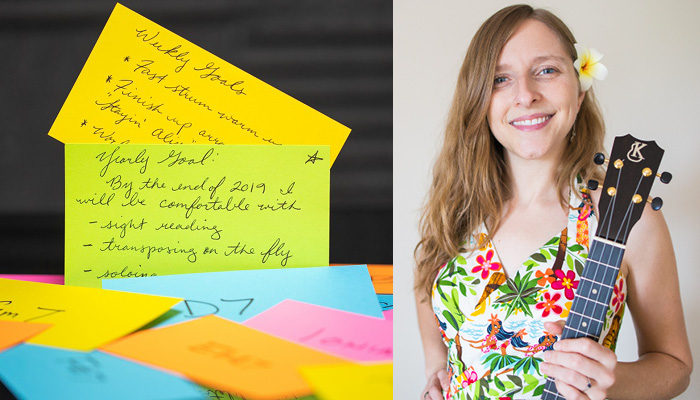 Weekly Goals
* Fast strum warm u
* Finish up arr
"Stayin' Aliv
* W
Yearly Goal:
By the end of 2019 I
will be comfortable with
- sight reading
- transposing on the fly
- soloing
m 7
D7
K